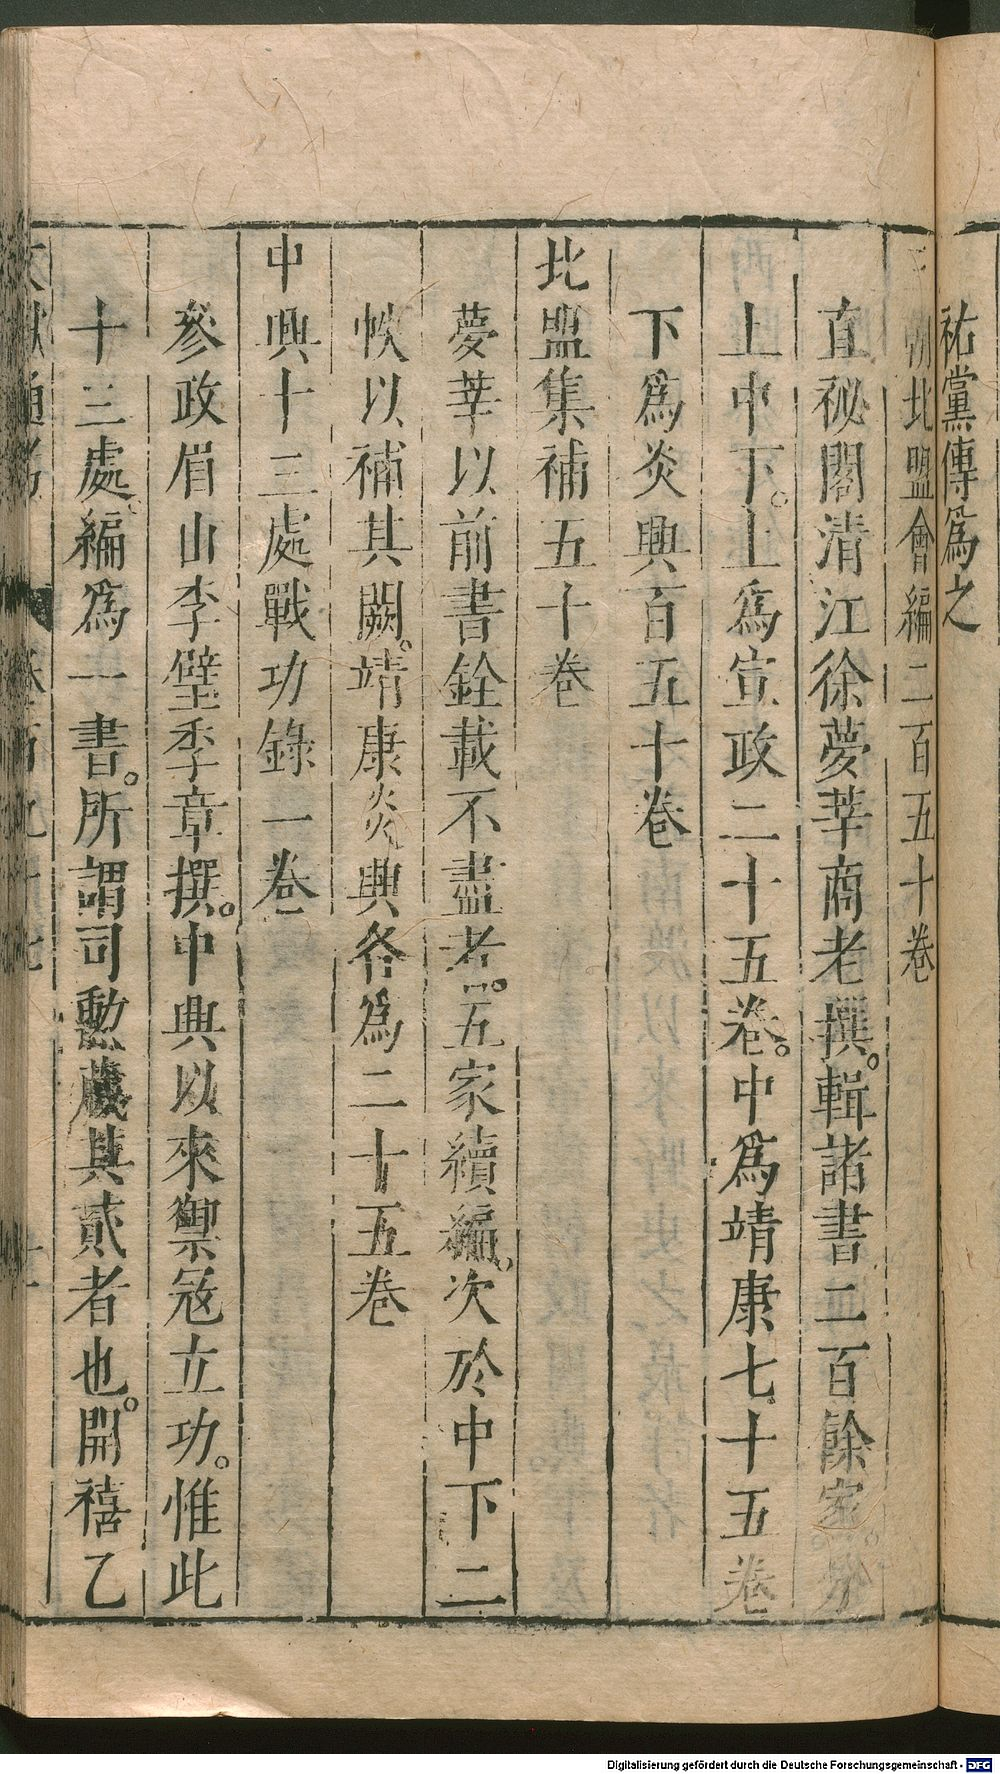 祐黨傳爲之
朝北盟會編二百五十卷
直祕閣清江徐夢莘商老撰。輯諸書二百餘家。分
上中下。上爲宣政二十五卷。中爲靖康七十五卷
下爲炎興百五十卷
北盟集補五十卷
夢莘以前書銓載不盡者。五家續編。次於中下二
帙以補其闕。靖康炎興各爲二十五卷
中興十三處戰功錄一卷
參政眉山李壁季章撰。中興以來禦寇立功。惟此
十三處。編爲一書。所謂司勲藏其貳者也。開禧乙
Digitalisierung gefördert durch die Deutsche Forschungsgemeinschaft - DFG